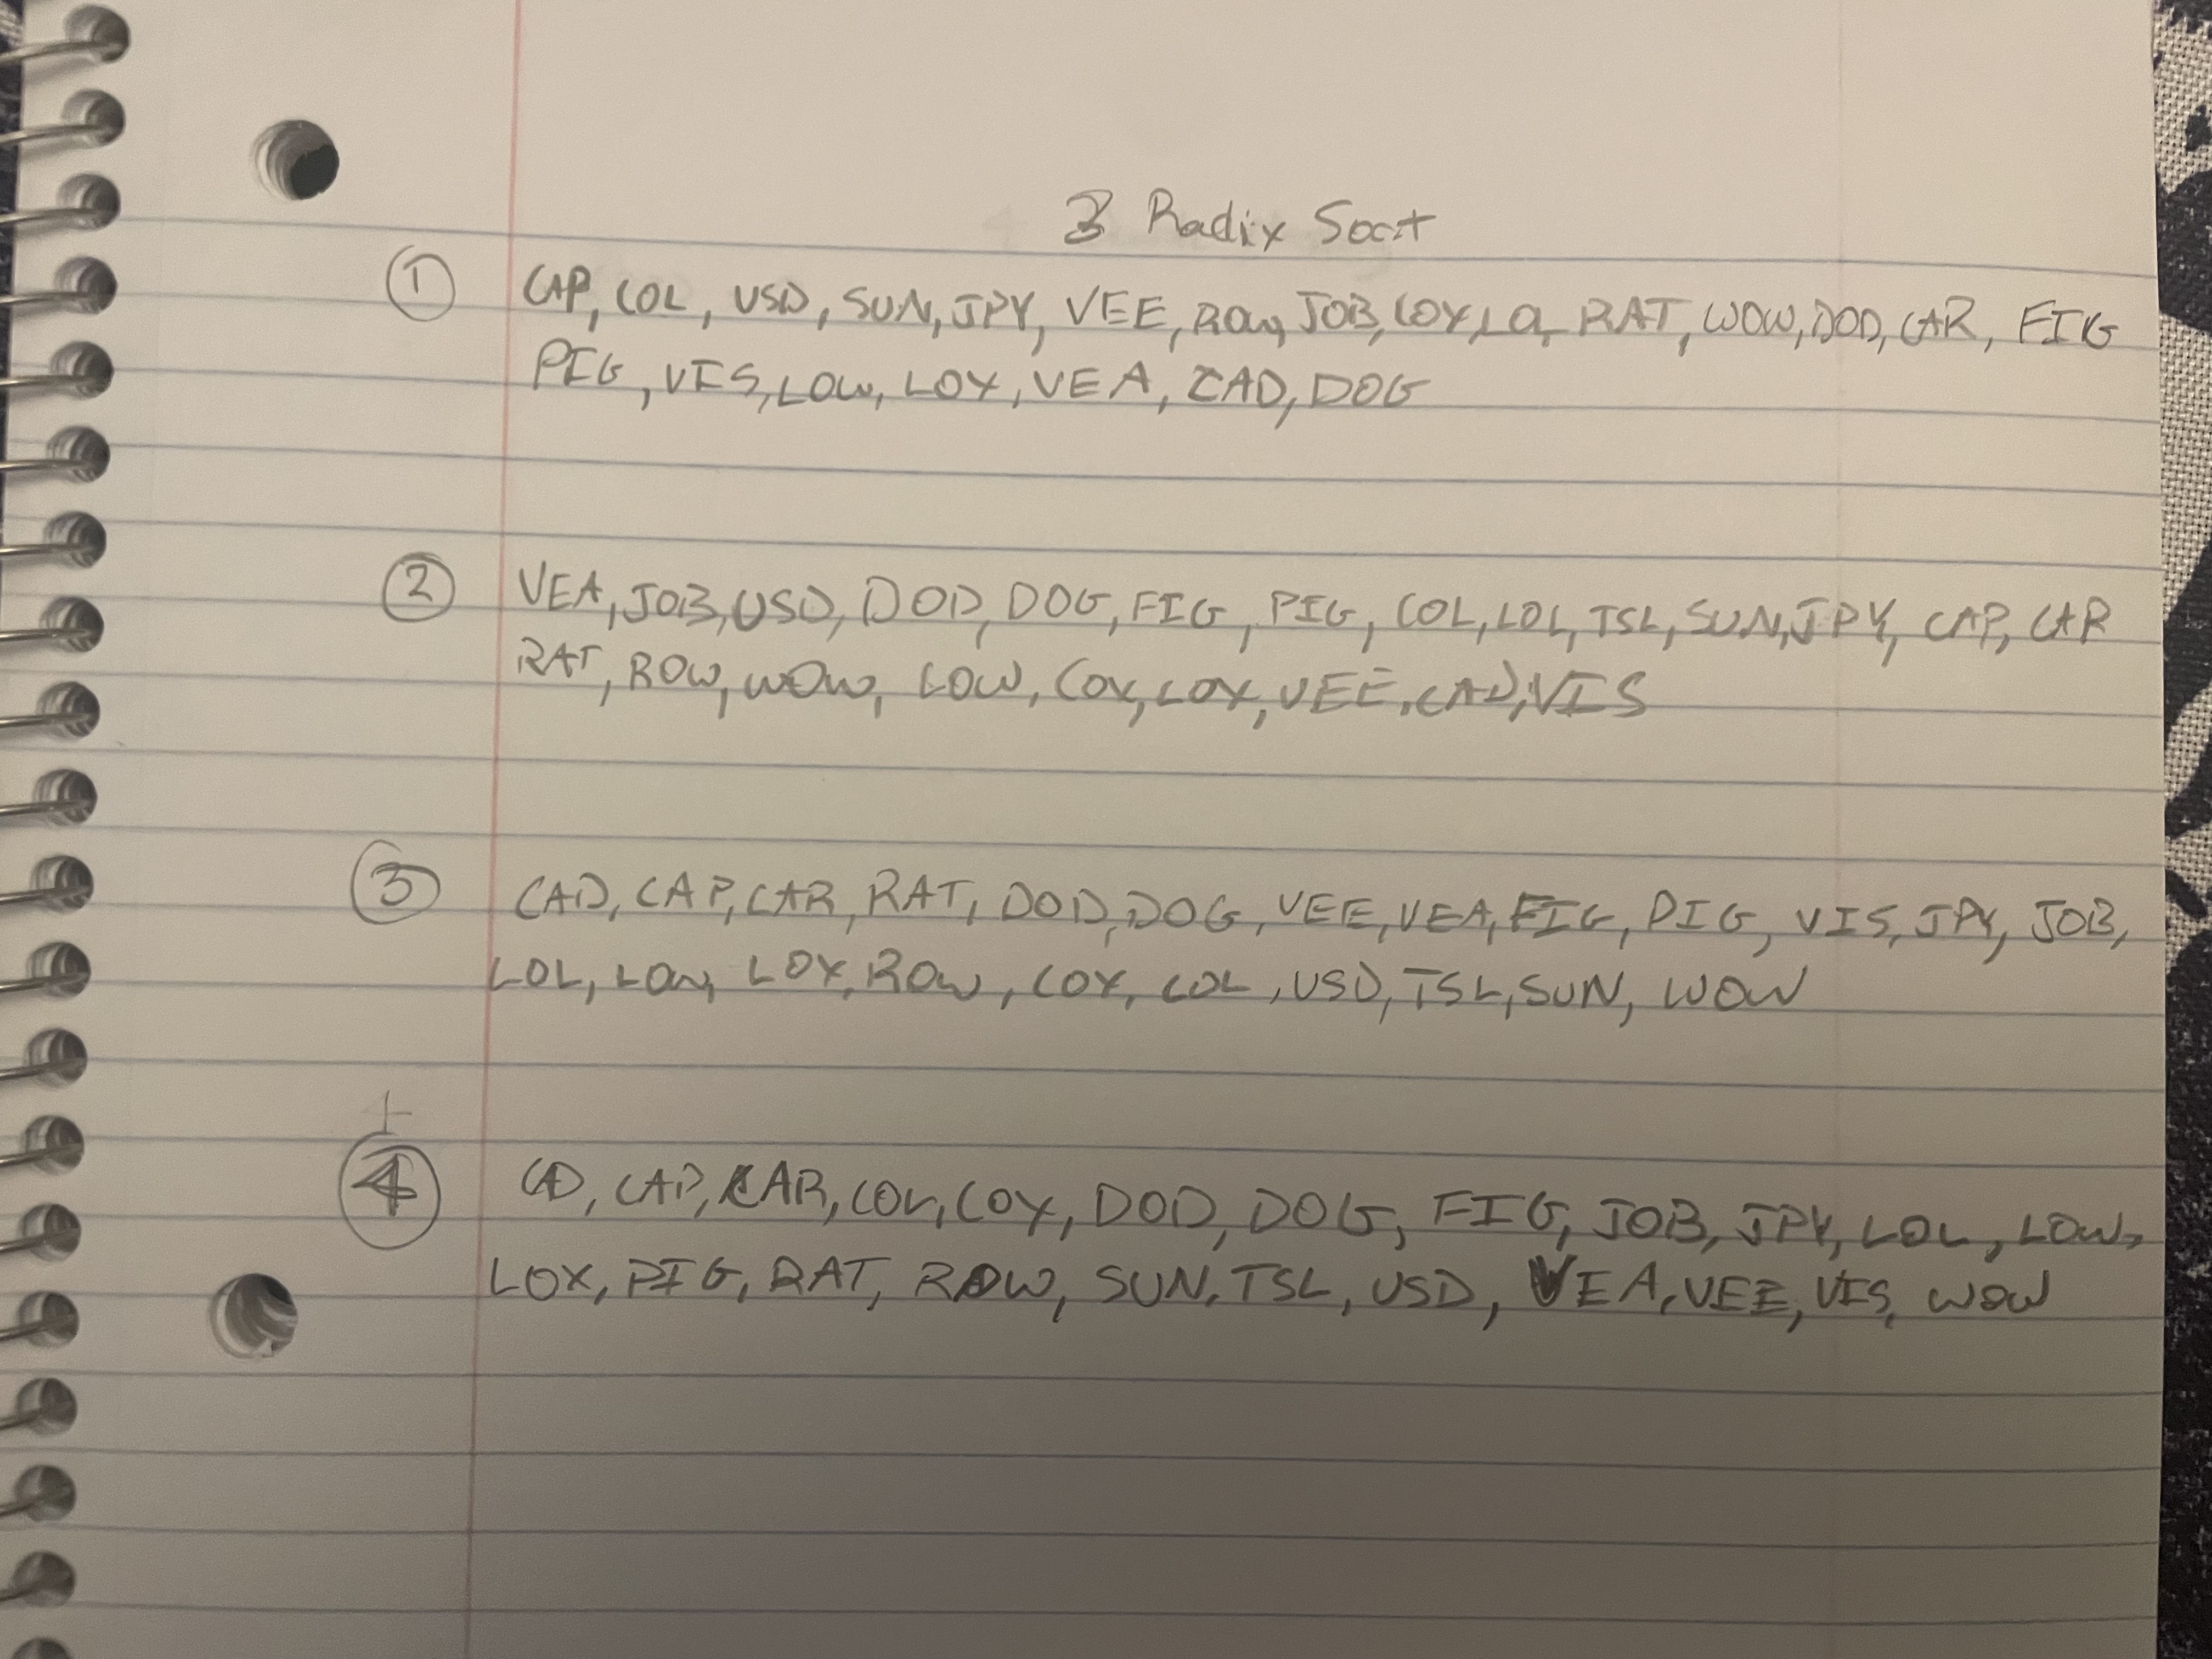 3 Radix Sort
① CAP, COL, USD, SUN, JPY, VEE, ROW, JOB, COX, LOL, RAT, WOW, DOD, CAR, FIG
PIG, VIS, LOW, LOX, VEA, CAD, DOG
② VEA, JOB, USD, DOD, DOG, FIG, PIG, COL, LOL, TSL, SUN, JPY, CAP, CAR
RAT, ROW, WOW, LOW, COX, LOX, VEE, CAD, VIS
③ CAD, CAP, CAR, RAT, DOD, DOG, VEE, VEA, FIG, PIG, VIS, JPY, JOB,
LOL, LOW, LOX, ROW, COX, COL, USD, TSL, SUN, WOW
④ CAP, CAR, COL, COX, DOD, DOG, FIG, JOB, JPY, LOL, LOW,
LOX, PIG, RAT, ROW, SUN, TSL, USD, VEA, VEE, VIS, WOW